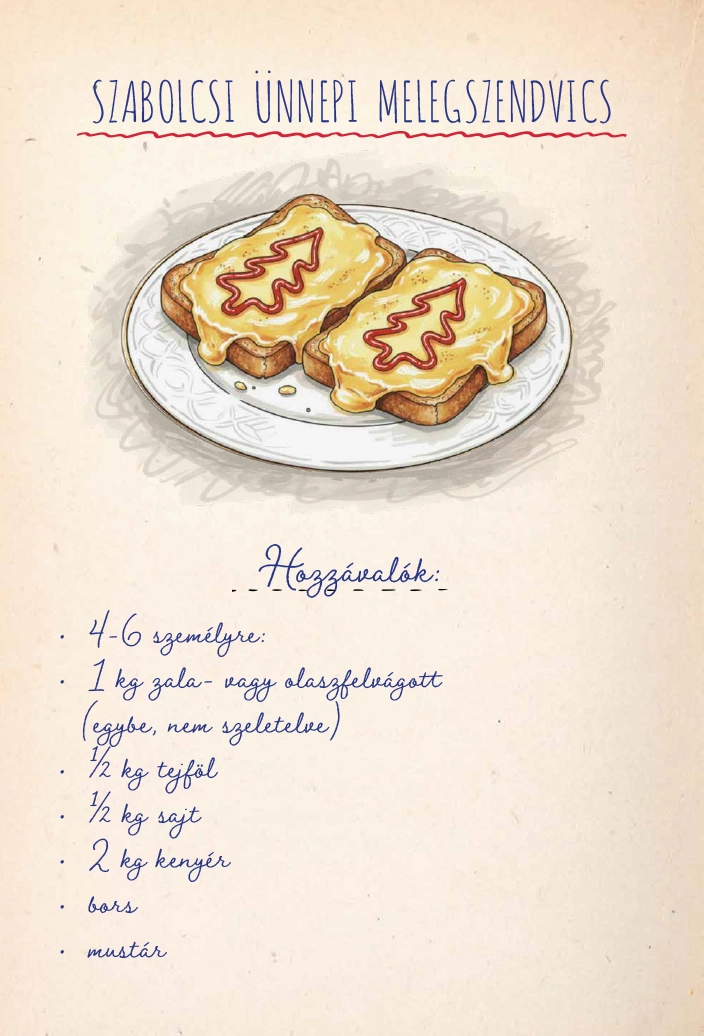 SZABOLCSI ÜNNEPI MELEGSZENDVICS
Hozzávalók:
• 4-6 személyre:
• 1 kg zala- vagy olaszfelvágott
(egybe, nem szeletelve)
• ½ kg tejföl
• ½ kg sajt
• 2 kg kenyér
• bors
• mustár